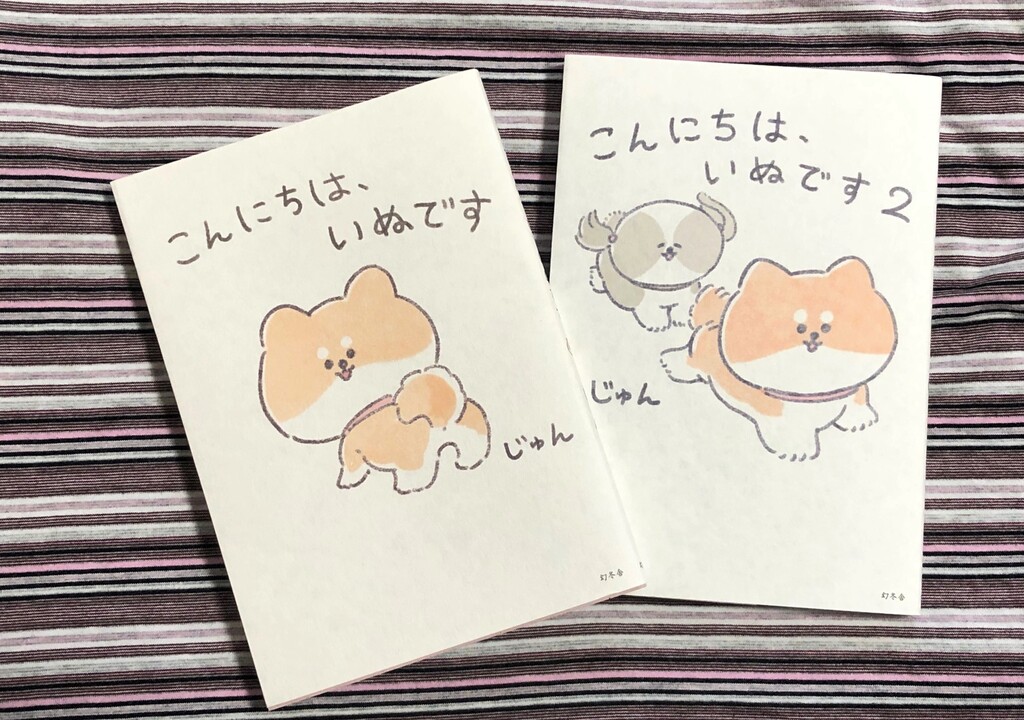 こんにちは、
いぬです
じゅん
幻冬舎
こんにちは、
いぬです2
じゅん
幻冬舎